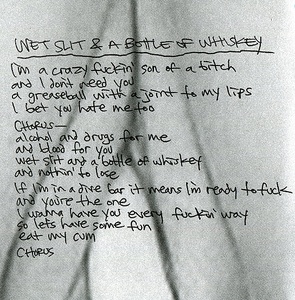 WET SLIT & A BOTTLE OF WHISKEY
I'm a crazy fuckin' son of a bitch
and I don't need you
a greaseball with a joint to my lips
I bet you hate me too
CHORUS—
alcohol and drugs for me
and blood for you
wet slit and a bottle of whiskey
and nothin' to lose
If I'm in a dive bar it means I'm ready to fuck
and you're the one
I wanna have you every fuckin' way
so lets have some fun
eat my cum
CHORUS